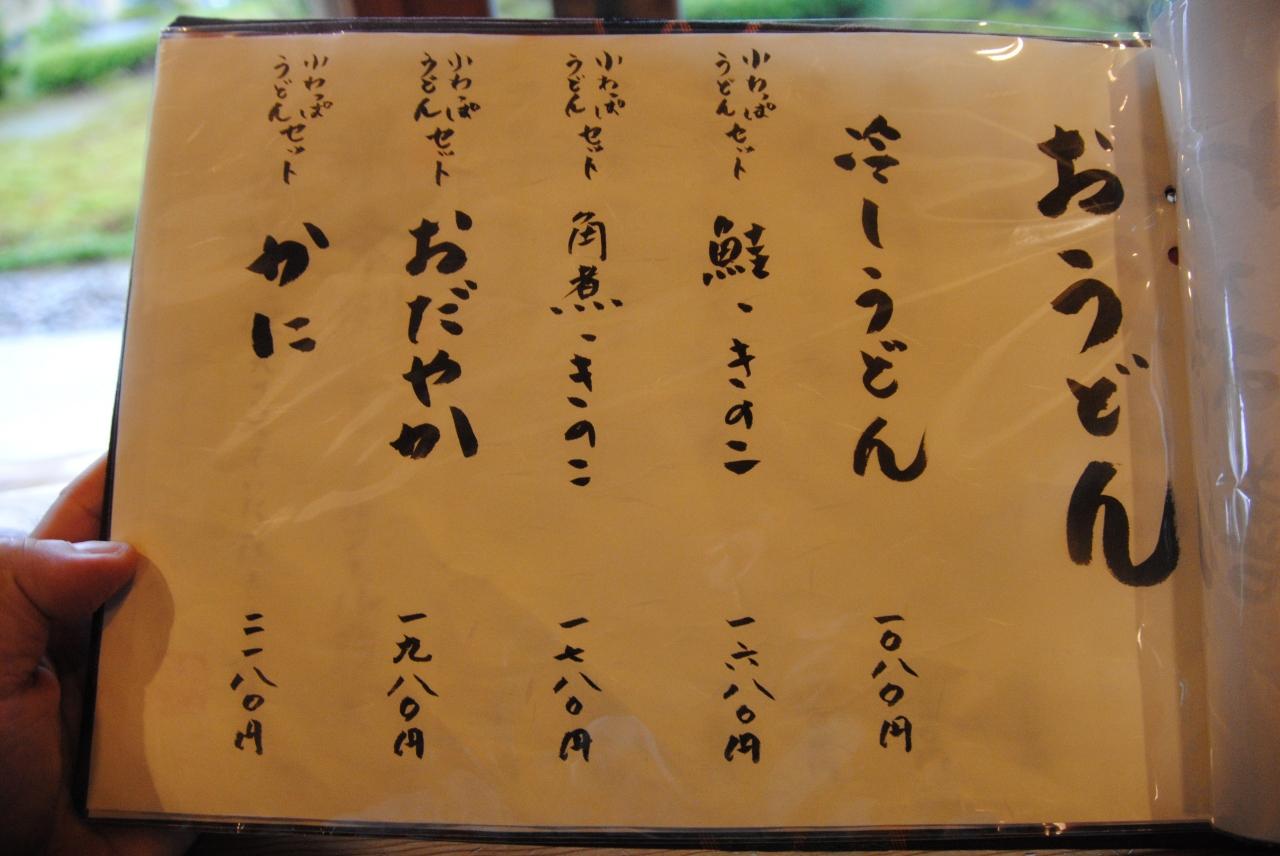 おうどん
冷しうどん
一〇八〇円
小わっぱ
うどんセット
鮭、きのこ
一六八〇円
小わっぱ
うどんセット
角煮、きのこ
一七八〇円
小わっぱ
うどんセット
おだやか
一九八〇円
小わっぱ
うどんセット
かに
二一八〇円